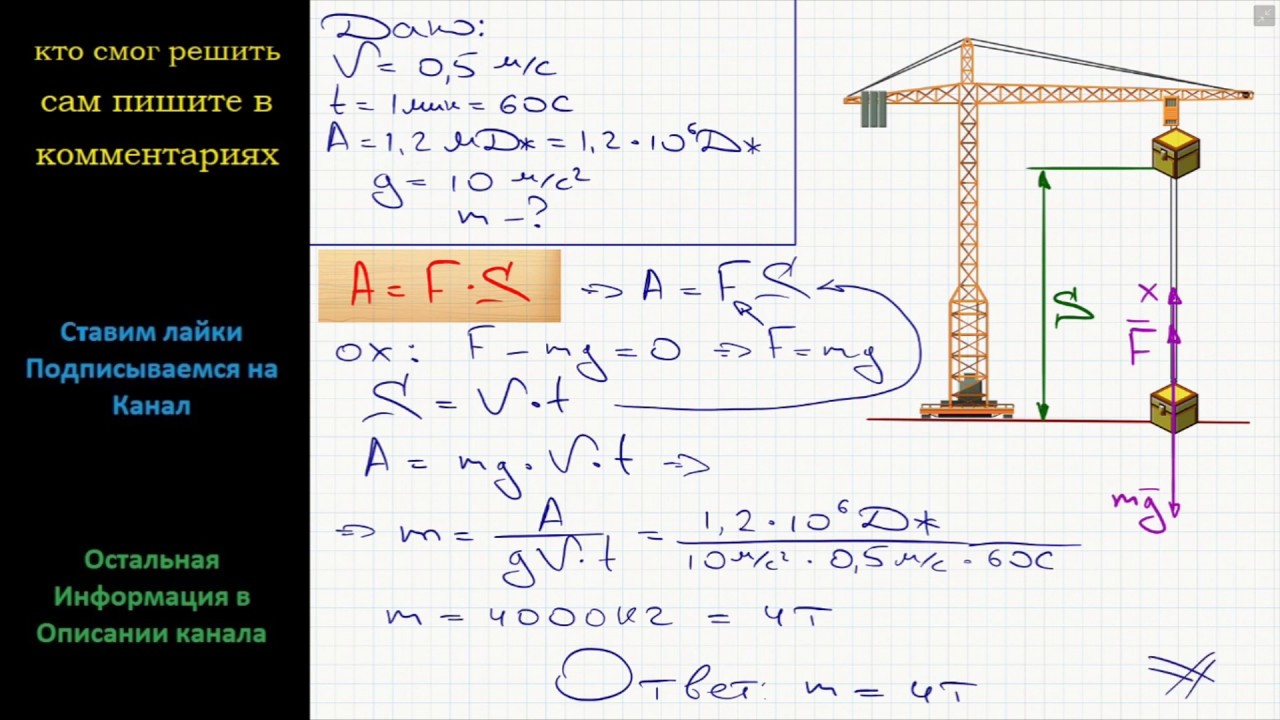 кто смог решить
сам пишите в
комментариях
Ставим лайки
Подписываемся на
Канал
Остальная
Информация в
Описании канала
Дано:
V = 0,5 м/с
t = 1 мин = 60 с
A = 1,2 МДж = 1,2 · 10⁶ Дж
g = 10 м/с²
m – ?
A = F · S ⇒ A = F S
ox: F – mg = 0 ⇒ F = mg
S = V · t
A = mg · V · t ⇒
⇒ m = A / (gV · t) = 1,2 · 10⁶ Дж / (10 м/с² · 0,5 м/с · 60 с)
m = 4000 кг = 4 т
Ответ: m = 4 т
S
x
F̅
mg̅